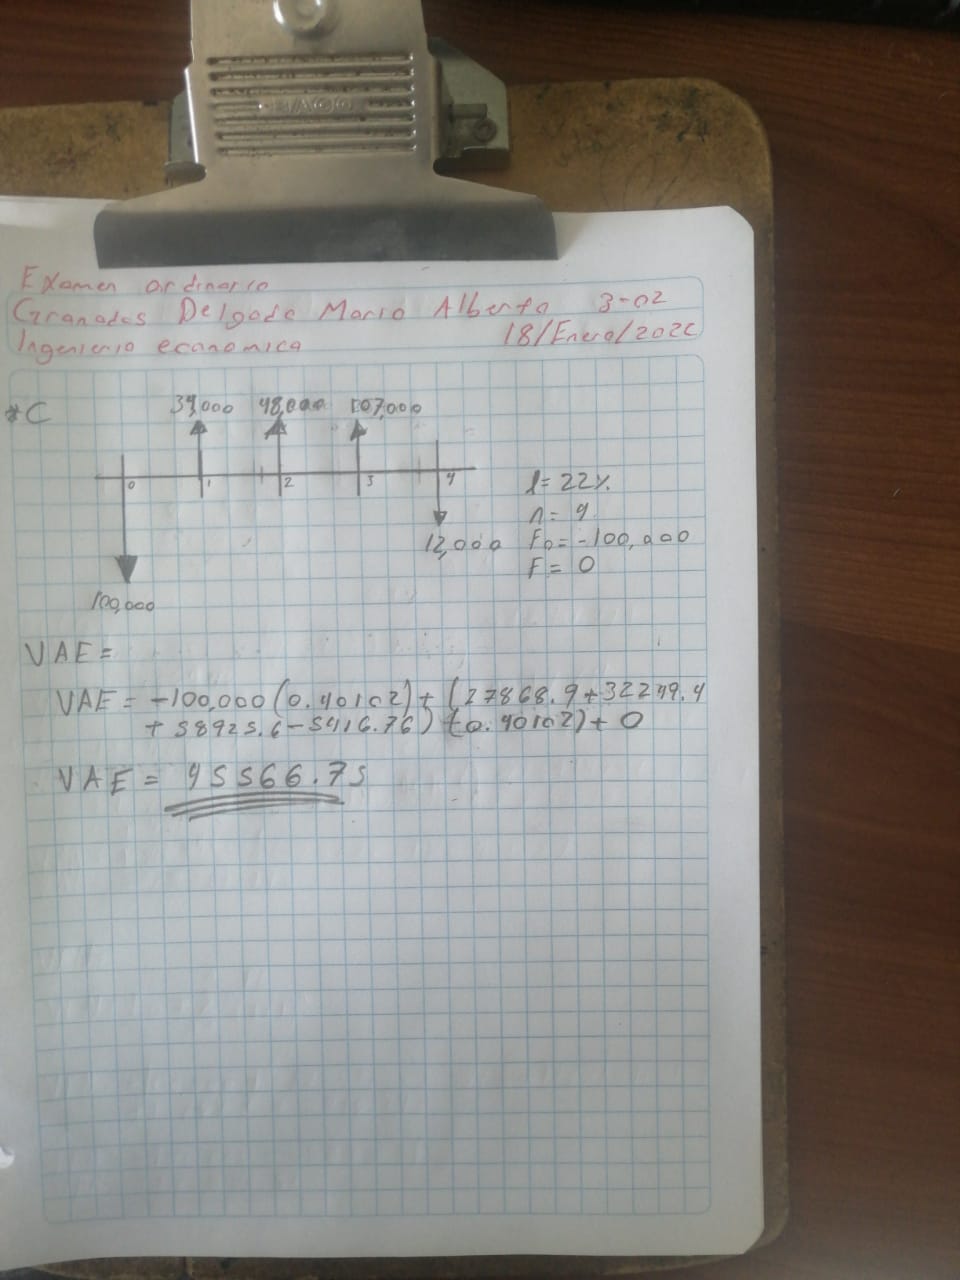 HACO
Examen ordinario
Granados Delgado Mario Alberto 3-02
Ingenieria economica 18/Enero/2022
*C 34,000 48,000 107,000
0 1 2 3 4
I=22%
n=4
12,000 F0=-100,000
F=0
100,000
VAE=
VAE=-100,000(0.40102)+(27868.9+32249.4
+58925.6-5416.76)(0.40102)+0
VAE=45566.75